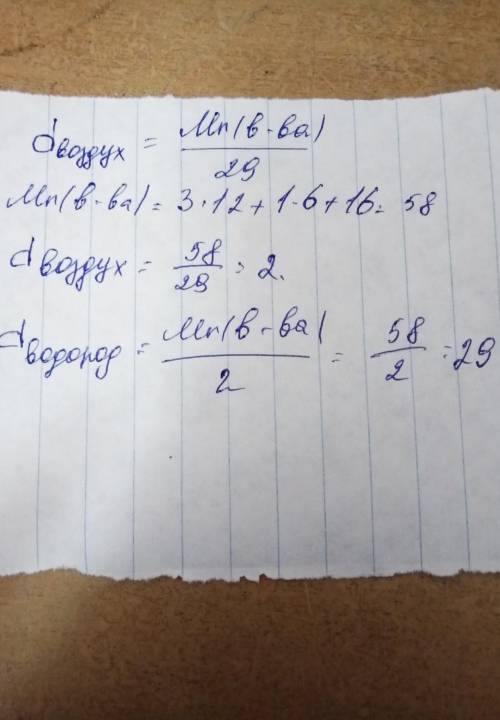 dвоздух = Mr(в-ва) / 29
Mr(в-ва) = 3·12 + 1·6 + 16 = 58
dвоздух = 58 / 29 = 2.
dводород = Mr(в-ва) / 2 = 58 / 2 = 29